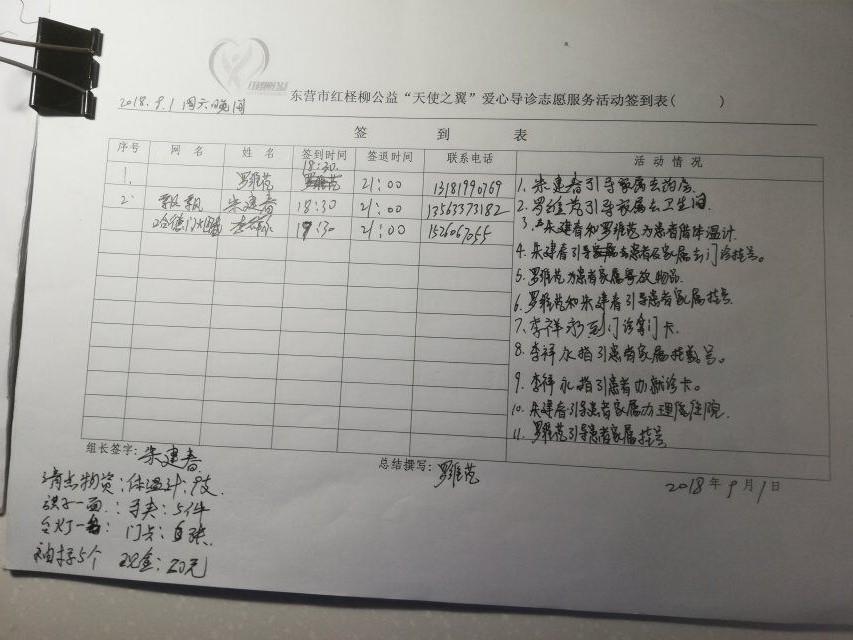 东营市红柽柳公益“天使之翼”爱心导诊志愿服务活动签到表（　　）
2018.9.1 周六晚间
签 到 表
序号 网名 姓名 签到时间 签退时间 联系电话 活动情况
1. 罗维范 18:30 21:00 13181990769
2. 朱建春 18:30 21:00 13563373182
李祥永 21:00
1. 朱建春引导家属去药房
2. 罗维范引导家属去卫生间.
3. 朱建春和罗维范为患者借体温计.
4. 朱建春引导患者及家属去门诊挂号。
5. 罗维范为患者家属寄放物品.
6. 罗维范和朱建春引导患者家属挂号
7. 李祥永到门诊拿门卡.
8. 李祥永指引患者家属挂号。
9. 李祥永指引患者办就诊卡。
10. 朱建春引导患者家属办理住院.
11. 罗维范引导患者家属挂号
组长签字：朱建春
总结撰写：罗维范
2018年9月1日
清点物资：体温计：9支.
一面：手夹：5件
门卡：
5个 现金：20元